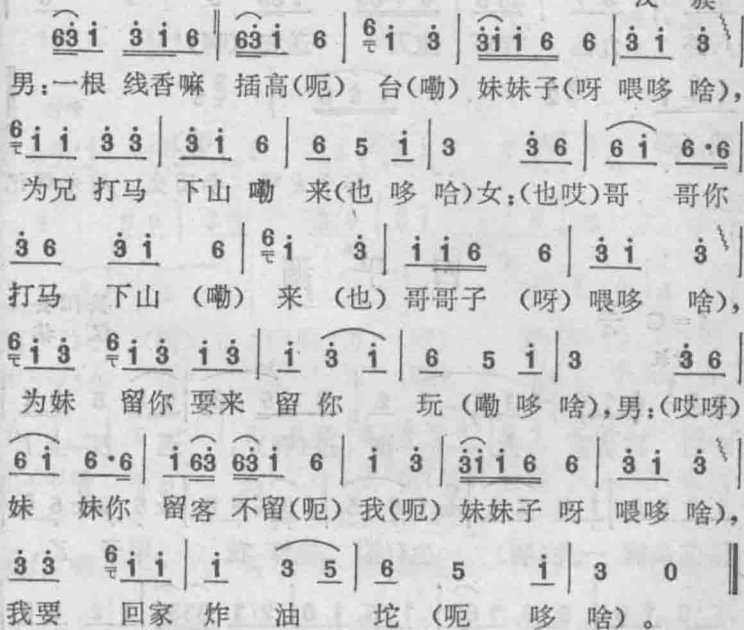 汉 族
63 i 3 i 6 | 6 3 i 6 | 6 i 3 | 3 i i 6 6 | 3 i 3
男：一根 线香嘛 插高(呃) 台(嘞) 妹妹子(呀 喂哆 啥)，
6 i i 3 3 | 3 i 6 | 6 5 i | 3 3 6 | 6 i 6·6
为兄 打马 下山 嘞 来(也 哆 哈)女：(也哎)哥 哥你
3 6 3 i 6 | 6 i 3 | i i 6 6 | 3 i 3
打马 下山 (嘞) 来 (也) 哥哥子 (呀) 喂哆 啥)，
6 i 3 6 i 3 i 3 | i 3 i | 6 5 i | 3 3 6
为妹 留你 耍来 留 你 玩 (嘞 哆 啥)，男：(哎呀)
6 i 6·6 | i 6 3 6 3 i 6 | i 3 | 3 i i 6 6 | 3 i 3
妹 妹你 留客 不留(呃) 我(呃) 妹妹子 呀 喂哆 啥)，
3 3 6 i i | i 3 5 | 6 5 i | 3 0
我要 回家 炸 油 坨 (呃 哆 啥)。